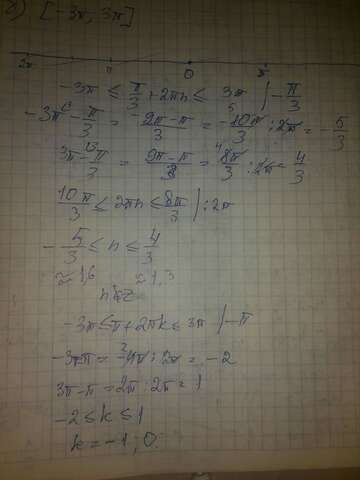 г) [-3π, 3π]
2π π 0 π
-3π ≤ π/3 + 2πn ≤ 3π | -π/3
-3π - π/3 = (-9π - π)/3 = -10π/3 : 2π = -5/3
3π - π/3 = (9π - π)/3 = 8π/3 : 2π = 4/3
10π/3 ≤ 2πn ≤ 8π/3 | : 2π
-5/3 ≤ n ≤ 4/3
≈ 1,6 ≈ 1,3
-3π ≤ π + 2πk ≤ 3π | -π
-3π - π = -4π : 2π = -2
3π - π = 2π : 2π = 1
-2 ≤ k ≤ 1
k = -1; 0